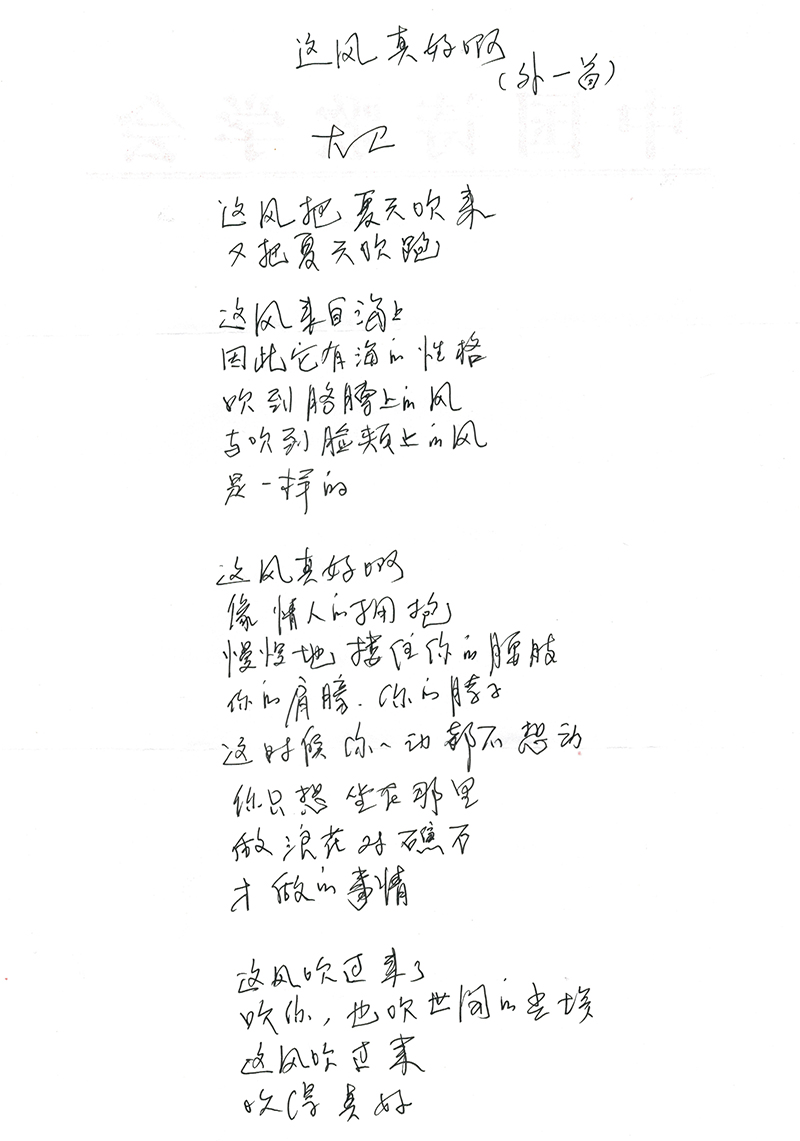 这风真好啊
（外一首）
大卫
这风把夏天吹来
又把夏天吹跑
这风来自海上
因此它有海的性格
吹到胳膊上的风
与吹到脸颊上的风
是一样的
这风真好啊
像情人的拥抱
慢慢地搂住你的腰肢
你的肩膀、你的脖子
这时候你一动都不想动
你只想坐在那里
做浪花对礁石
才做的事情
这风吹过来了
吹你，也吹世间的尘埃
这风吹过来
吹得真好